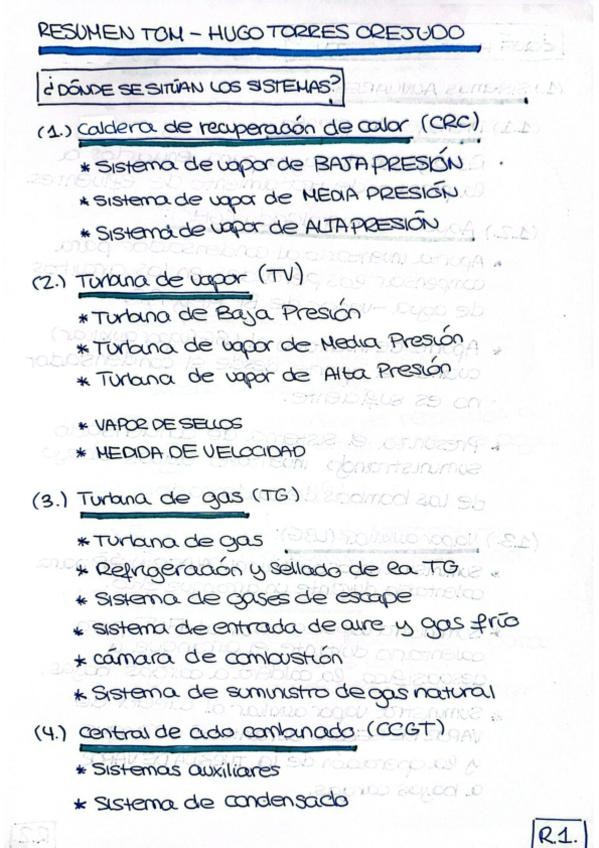 RESUMEN TOM - HUGO TORRES OREJUDO
¿DÓNDE SE SITÚAN LOS SISTEMAS?
(1.) Caldera de recuperación de calor (CRC)
* Sistema de vapor de BAJA PRESIÓN
* Sistema de vapor de MEDIA PRESIÓN
* Sistema de vapor de ALTA PRESIÓN
(2.) Turbina de vapor (TV)
* Turbina de Baja Presión
* Turbina de vapor de Media Presión
* Turbina de vapor de Alta Presión
* VAPOR DE SELLOS
* MEDIDA DE VELOCIDAD
(3.) Turbina de gas (TG)
* Turbina de gas
* Refrigeración y sellado de la TG
* Sistema de gases de escape
* Sistema de entrada de aire y gas frío
* cámara de combustión
* Sistema de suministro de gas natural
(4.) Central de ciclo combinado (CCGT)
* Sistemas auxiliares
* Sistema de condensado
R.1.